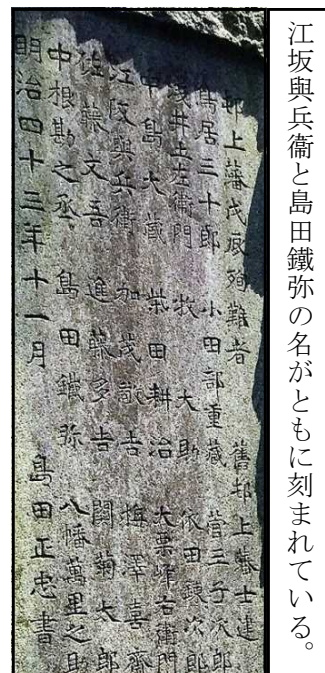 江坂與兵衞と島田鐵弥の名がともに刻まれている。
邨上藩戊辰殉難者 舊邨上藩士建
鳥居三十郎 小田部重藏 菅三子次郎
淺井土左衞門 牧大助 依田鎮次郎
中島大藏 柴田耕治 大栗峰右衞門
江坂與兵衞 加茂敬吉 梅澤喜齋
佐藤文吾 進藤多吉 関菊太郎
中根勘之丞 島田鐵弥 八幡萬里之助
明治四十三年十一月 島田正忠書